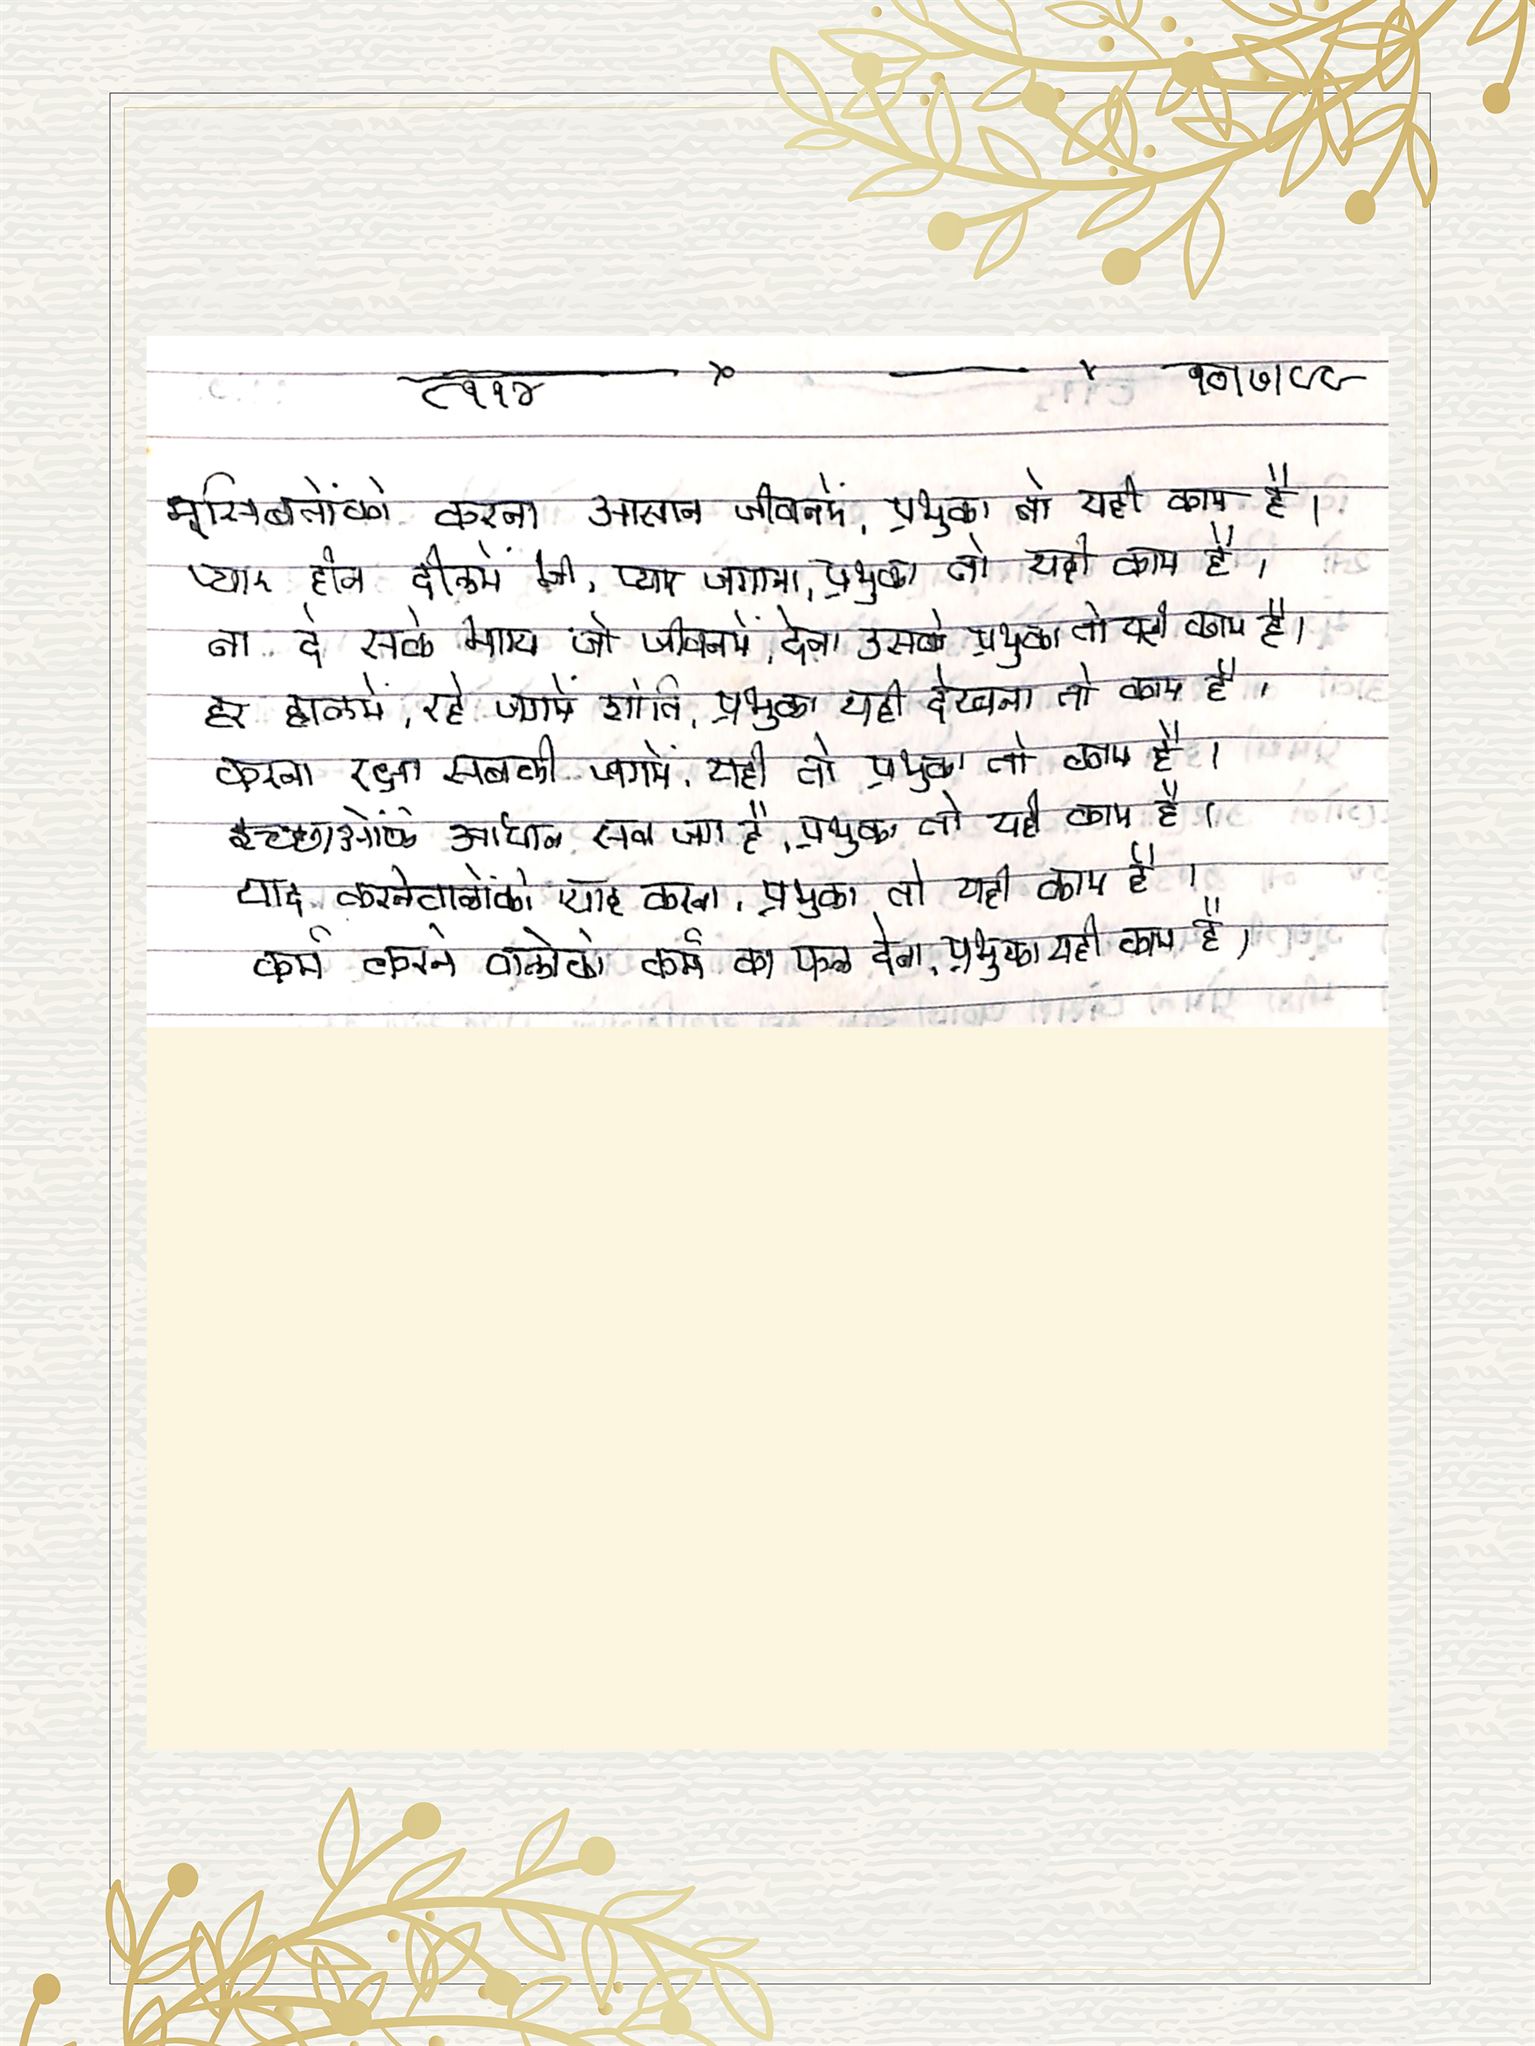 ८११४ १०।७।८८
मूसिबतोंको करना आसान जीवनमें, प्रभुका तो यही काम है।
प्यार हीन दीलमें भी, प्यार जगाना, प्रभुका तो यही काम है।
ना दे सके भाग्य जो जीवनमें, देना उसके प्रभुका तो यही काम है।
हर हालमें, रहे जगमें शांति, प्रभुका यही देखना तो काम है।
करना रक्षा सबकी जगमें, यही तो प्रभुका तो काम है।
इच्छाओंके आधीन सब जग है, प्रभुका तो यही काम है।
याद करनेवालोंको याद करना, प्रभुका तो यही काम है।
कर्म करने वालोको कर्म का फल देना, प्रभुका यही काम है।